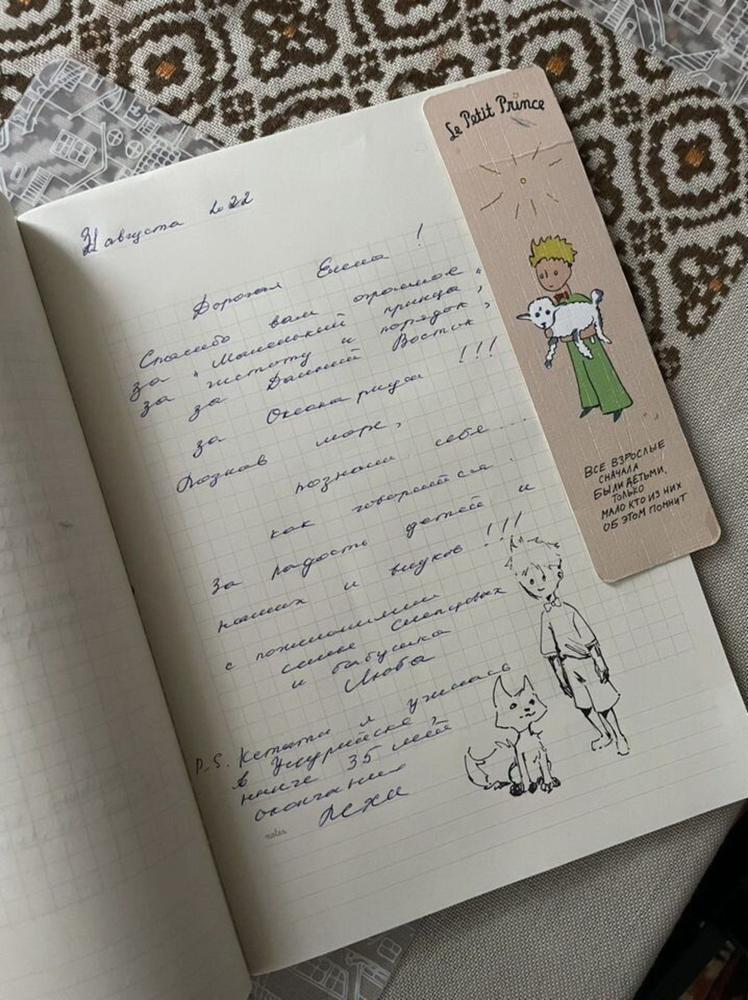 31 августа 2022
Дорогая Елена !
Спасибо вам огромное
за "Маленький принца",
за чистоту и порядок,
за Дальний Восток,
за Океанариум !!!
Познав море,
познаешь себе ...
как говорится.
За радость детей и
наших и внуков !!!
с пожеланиями
семьи
и бабушка
Люба
P.S. Кстати я училась
в Уссурийске,
нынче 35 лет
окончания
notes
Le Petit Prince
ВСЕ ВЗРОСЛЫЕ
СНАЧАЛА
БЫЛИ ДЕТЬМИ,
ТОЛЬКО
МАЛО КТО ИЗ НИХ
ОБ ЭТОМ ПОМНИТ